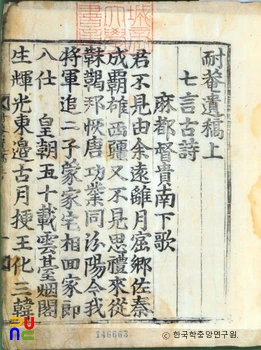 耐菴遺稿上
七言古詩
麻都督貴南下歌
君不見由余遠離月窟鄕佐秦
成覇雄西疆又不見思禮來從
靺鞨邦恢唐功業同汾陽今我
將軍追二子蒙家宅相回家郞
八仕 皇朝五十載雲㙜烟閣
生輝光東邊古月挻王化三韓
140663
ⓒ 한국학중앙연구원